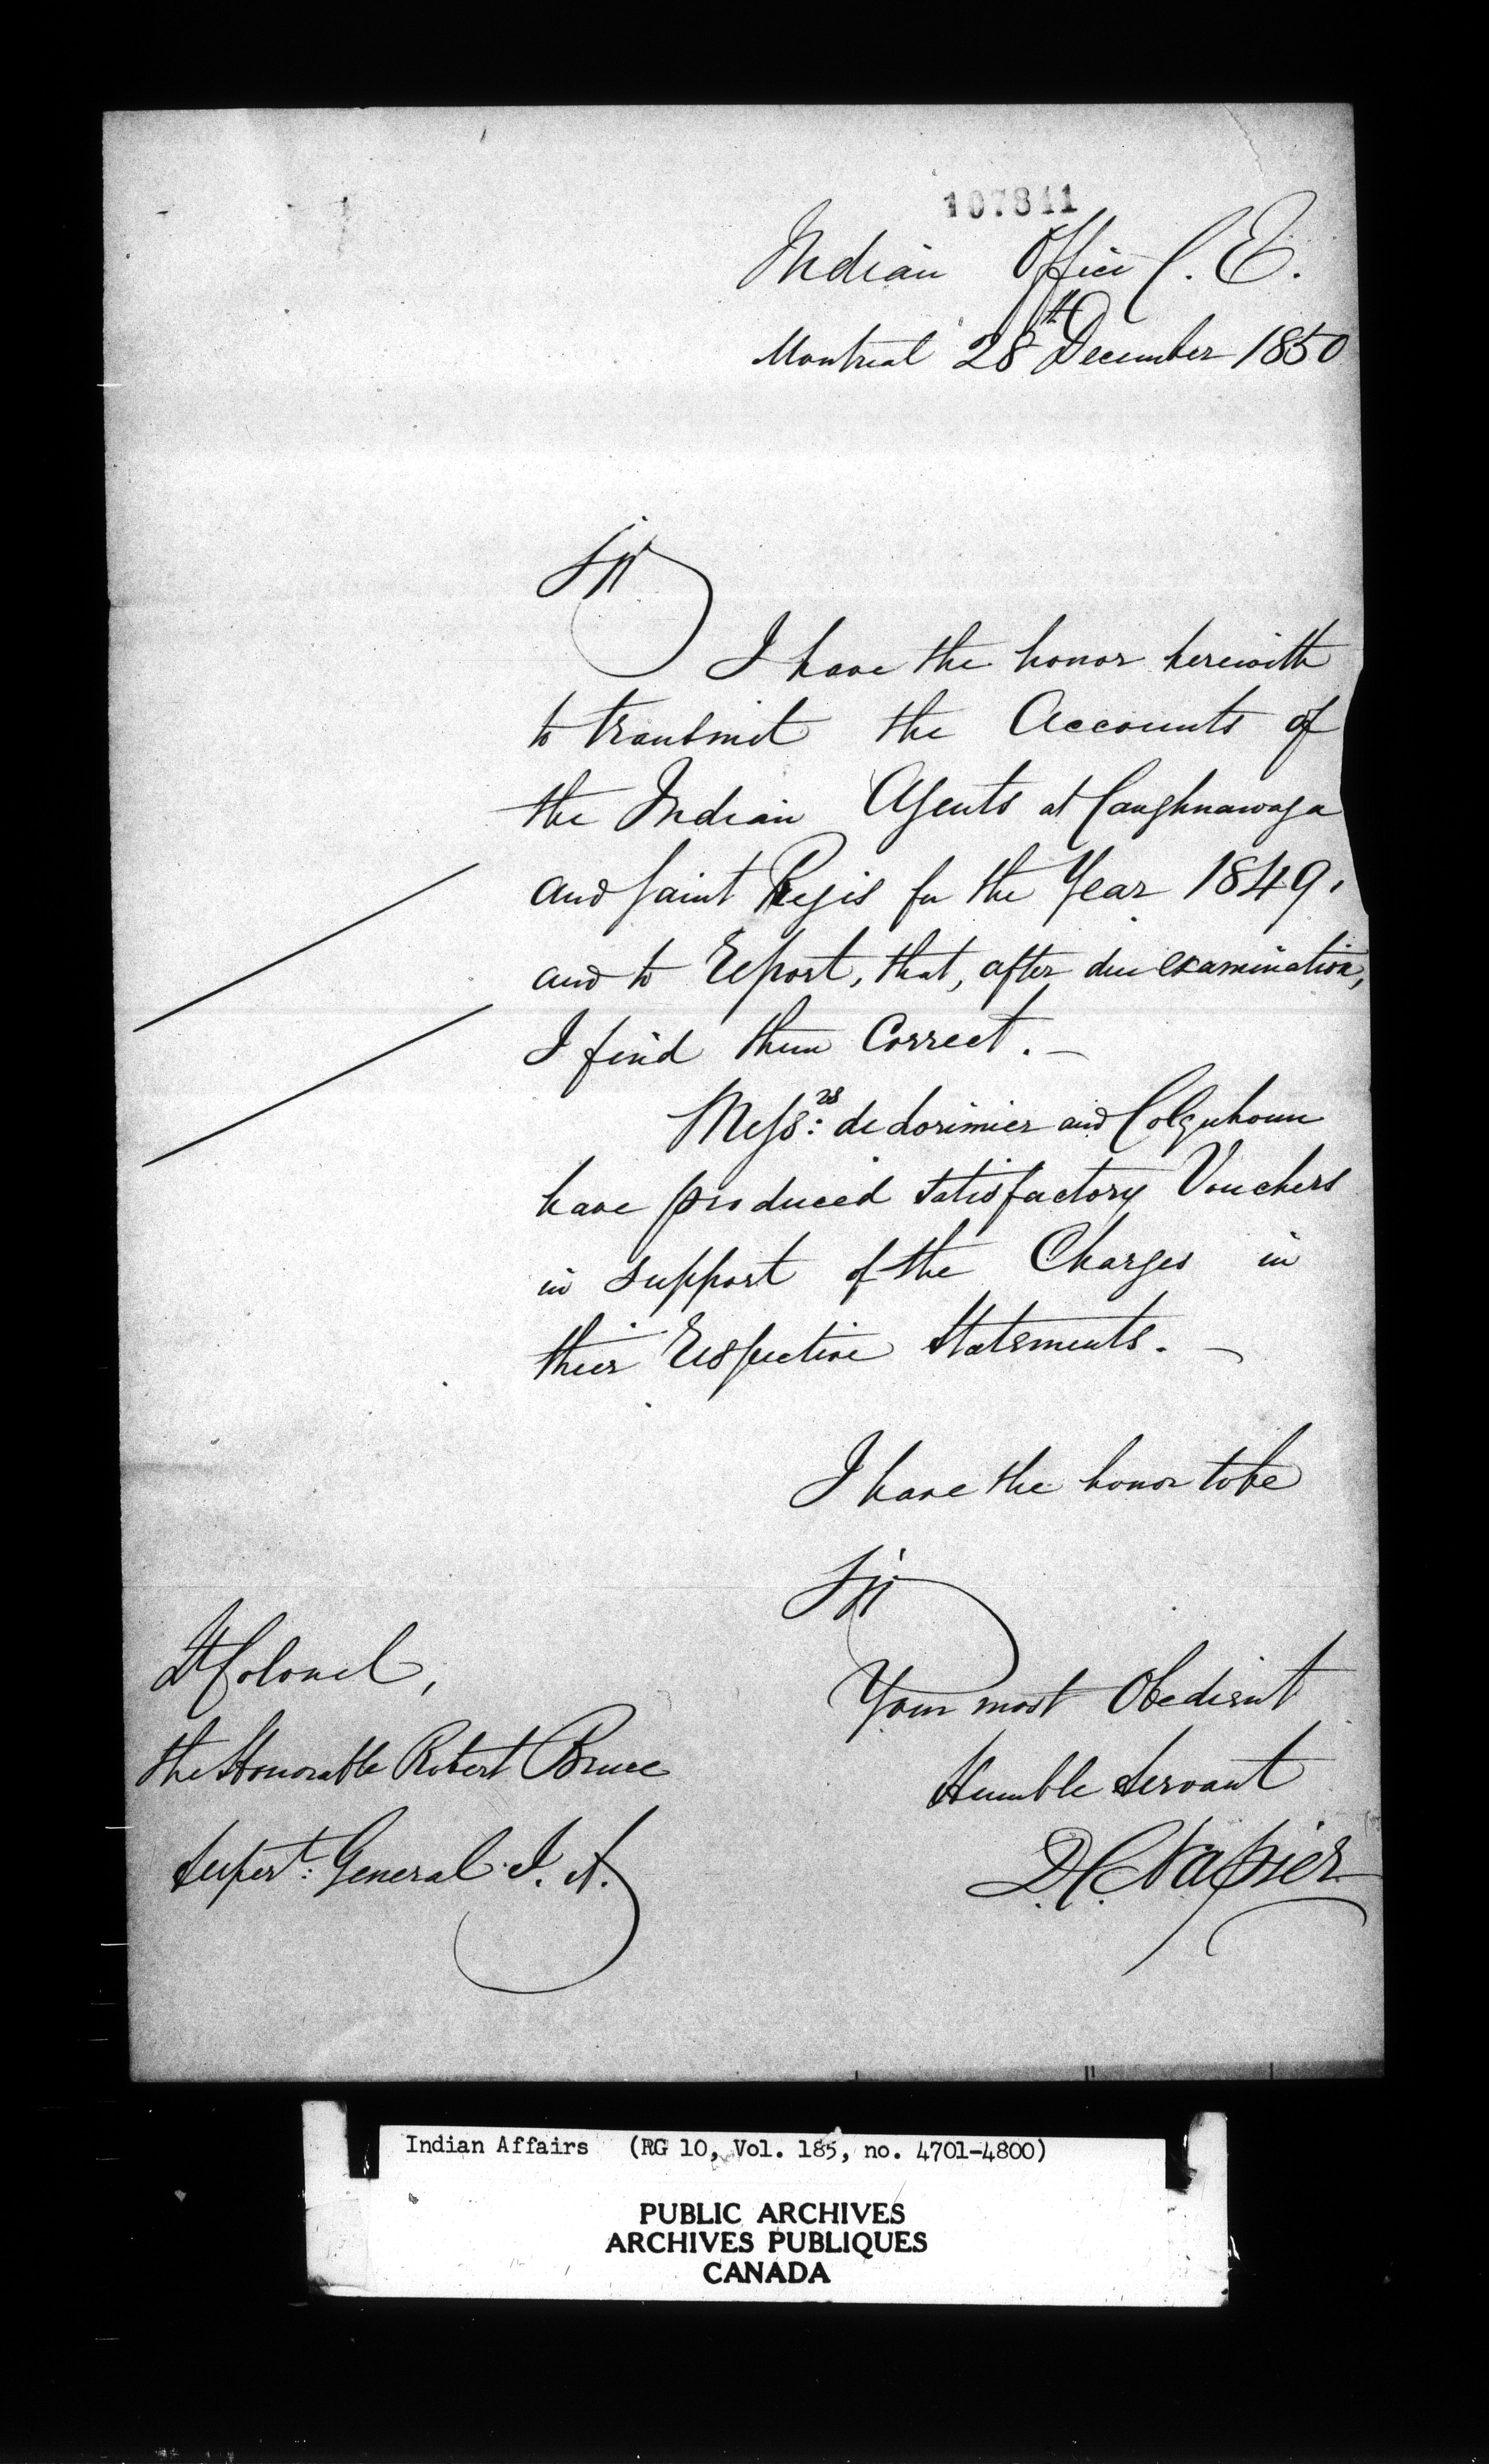 107841
Indian Office C. E.
Montreal 28th December 1850
Sir
I have the honor herewith
to transmit the Accounts of
the Indian Agents at Caughnawaga
and Saint Regis for the Year 1849,
and to Report, that, after due examination,
I find them Correct. —
Messrs: de Lorimier and Colquhoun
have produced satisfactory Vouchers
in support of the Charges in
their Respective Statements. —
I have the honor to be
Sir
Your most Obedient
Humble Servant
D. C. Napier
Lt Colonel,
the Honorable Robert Bruce
Supert: General I. A.
Indian Affairs (RG 10, Vol. 185, no. 4701-4800)
PUBLIC ARCHIVES
ARCHIVES PUBLIQUES
CANADA